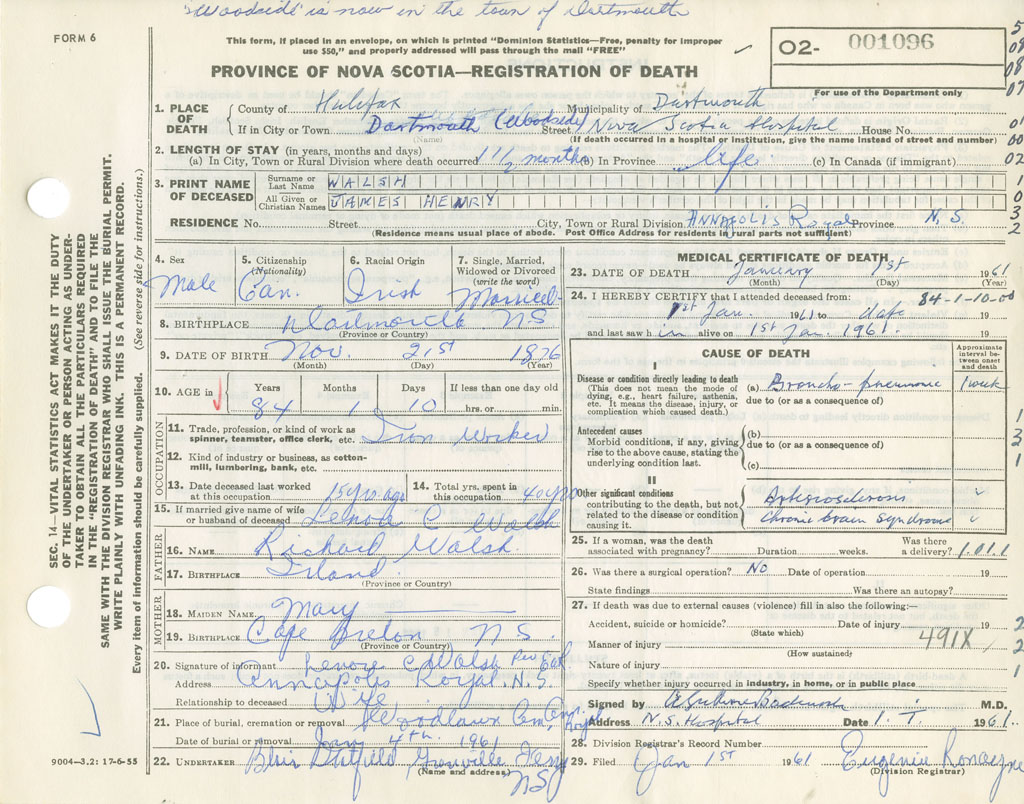 "Woodside" is now in the town of Dartmouth
FORM 6
This form, if placed in an envelope, on which is printed "Dominion Statistics—Free, penalty for improper
use $50," and properly addressed will pass through the mail "FREE"
PROVINCE OF NOVA SCOTIA—REGISTRATION OF DEATH
O2- 001096
For use of the Department only
5
08
08
07
01
60
02
1
0
3
2
1. PLACE OF DEATH
County of Halifax Municipality of Dartmouth
If in City or Town Dartmouth (Woodside) Street Nova Scotia Hospital House No.
(Name) (If death occurred in a hospital or institution, give the name instead of street and number)
2. LENGTH OF STAY (in years, months and days)
(a) In City, Town or Rural Division where death occurred 1 1/2 months (b) In Province life (c) In Canada (if immigrant)
3. PRINT NAME OF DECEASED
Surname or Last Name WALSH
All Given or Christian Names JAMES HENRY
RESIDENCE No. Street City, Town or Rural Division ANNAPOLIS Royal Province N.S.
(Residence means usual place of abode. Post Office Address for residents in rural parts not sufficient)
4. Sex
Male
5. Citizenship
(Nationality)
Can.
6. Racial Origin
Irish
7. Single, Married,
Widowed or Divorced
(write the word)
Married
8. BIRTHPLACE Dartmouth NS
(Province or Country)
9. DATE OF BIRTH Nov. 21st 1876
(Month) (Day) (Year)
10. AGE in
Years Months Days If less than one day old
84 1 10 hrs. or min.
OCCUPATION
11. Trade, profession, or kind of work as
spinner, teamster, office clerk, etc. Iron Worker
12. Kind of industry or business, as cotton-
mill, lumbering, bank, etc.
13. Date deceased last worked
at this occupation 15 yrs ago
14. Total yrs. spent in
this occupation 40 yrs
15. If married give name of wife
or husband of deceased Lenora C Walsh
FATHER
16. NAME Richard Walsh
17. BIRTHPLACE Irland.
(Province or Country)
MOTHER
18. MAIDEN NAME Mary
19. BIRTHPLACE Cape Breton N S.
(Province or Country)
20. Signature of informant Lenore C Walsh
Address Annapolis Royal. N.S.
Relationship to deceased Wife
21. Place of burial, cremation or removal Woodlawn Cem Ann. Royl
Date of burial or removal Jan 4th. 1961
22. UNDERTAKER Granville Ferry
(Name and address) NS
9004—3.2: 17-6-55
MEDICAL CERTIFICATE OF DEATH
23. DATE OF DEATH January 1st 1961
(Month) (Day) (Year)
84-1-10-00
24. I HEREBY CERTIFY that I attended deceased from:
1st Jan. 1961 to date 19
and last saw him alive on 1st Jan. 1961. 19
CAUSE OF DEATH
Approximate
interval be-
tween onset
and death
I
Disease or condition directly leading to death
(This does not mean the mode of
dying, e.g., heart failure, asthenia,
etc. It means the disease, injury, or
complication which caused death.)
(a) Broncho-pneumonia 1 week
due to (or as a consequence of)
Antecedent causes
Morbid conditions, if any, giving
rise to the above cause, stating the
underlying condition last.
(b)
due to (or as a consequence of)
(c)
1
3
2
1
II
Other significant conditions
contributing to the death, but not
related to the disease or condition
causing it.
Arteriosclerosis
Chronic brain syndrome
25. If a woman, was the death
associated with pregnancy? Duration weeks. Was there
a delivery? 1.011
26. Was there a surgical operation? No Date of operation 19
State findings Was there an autopsy?
27. If death was due to external causes (violence) fill in also the following:—
Accident, suicide or homicide? Date of injury 19
(State which)
Manner of injury 491X
(How sustained)
Nature of injury
Specify whether injury occurred in industry, in home, or in public place
2
2
1
Signed by M.D.
Address N.S. Hospital Date 1. I. 1961.
28. Division Registrar's Record Number
29. Filed Jan 1st 1961 Eugenie Ronayne
(Division Registrar)
SEC. 14—VITAL STATISTICS ACT MAKES IT THE DUTY
OF THE UNDERTAKER OR PERSON ACTING AS UNDER-
TAKER TO OBTAIN ALL THE PARTICULARS REQUIRED
IN THE "REGISTRATION OF DEATH" AND TO FILE THE
SAME WITH THE DIVISION REGISTRAR WHO SHALL ISSUE THE BURIAL PERMIT.
WRITE PLAINLY WITH UNFADING INK. THIS IS A PERMANENT RECORD.
Every item of information should be carefully supplied. (See reverse side for instructions.)